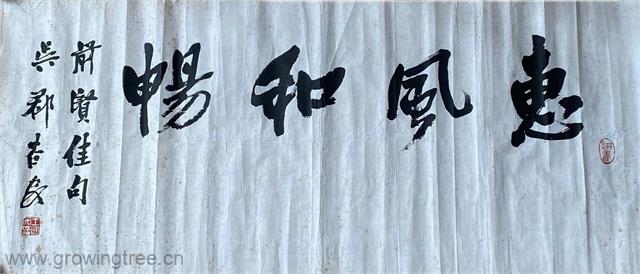 惠風和暢
前賢佳句
吳郡
www.growingtree.cn